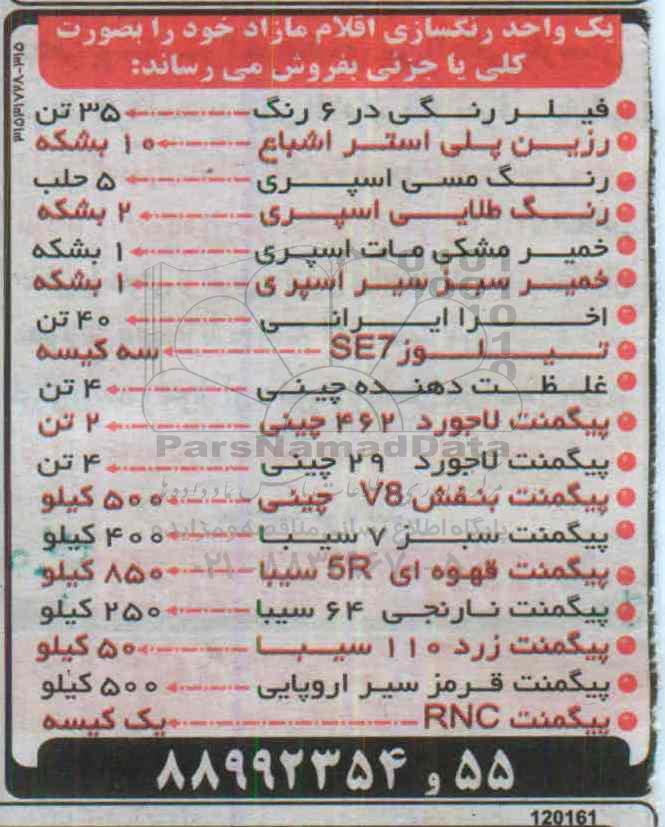 یک واحد رنگسازی اقلام مازاد خود را بصورت
کلی یا جزئی بفروش می رساند:
فیلر رنگی در ۶ رنگ ۳۵ تن
رزین پلی استر اشباع ۱۰ بشکه
رنگ مسی اسپری ۵ حلب
رنگ طلایی اسپری ۲ بشکه
خمیر مشکی مات اسپری ۱ بشکه
خمیر سبز سیر اسپری ۱ بشکه
اخرا ایرانی ۴۰ تن
تیلوز SE7 سه کیسه
غلظت دهنده چینی ۴ تن
پیگمنت لاجورد ۴۶۲ چینی ۲ تن
ParsNamadData
پیگمنت لاجورد ۲۹ چینی ۴ تن
پیگمنت بنفش V8 چینی ۵۰۰ کیلو
پیگمنت سبز ۷ سیبا ۴۰۰ کیلو
پیگمنت قهوه ای 5R سیبا ۸۵۰ کیلو
پیگمنت نارنجی ۶۴ سیبا ۲۵۰ کیلو
پیگمنت زرد ۱۱۰ سیبا ۵۰ کیلو
پیگمنت قرمز سیر اروپایی ۵۰۰ کیلو
پیگمنت RNC یک کیسه
۸۸۹۹۲۳۵۴ و ۵۵
120161